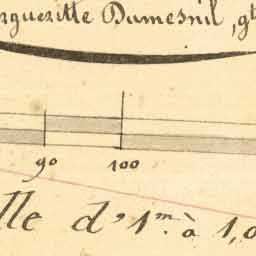 rgueritte Dumesnil, gt
90 100
lle d'1m. à 1,0